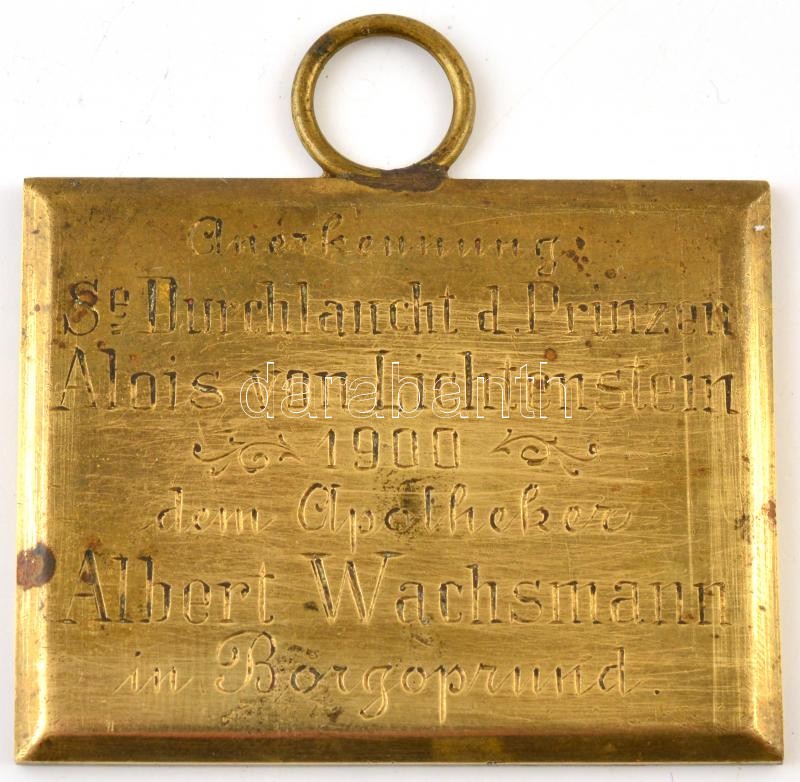 Anerkennung
Se Durchlaucht d. Prinzen
Alois van Lichtenstein
darabanth
1900
dem Apotheker
Albert Wachsmann
in Borgoprund.